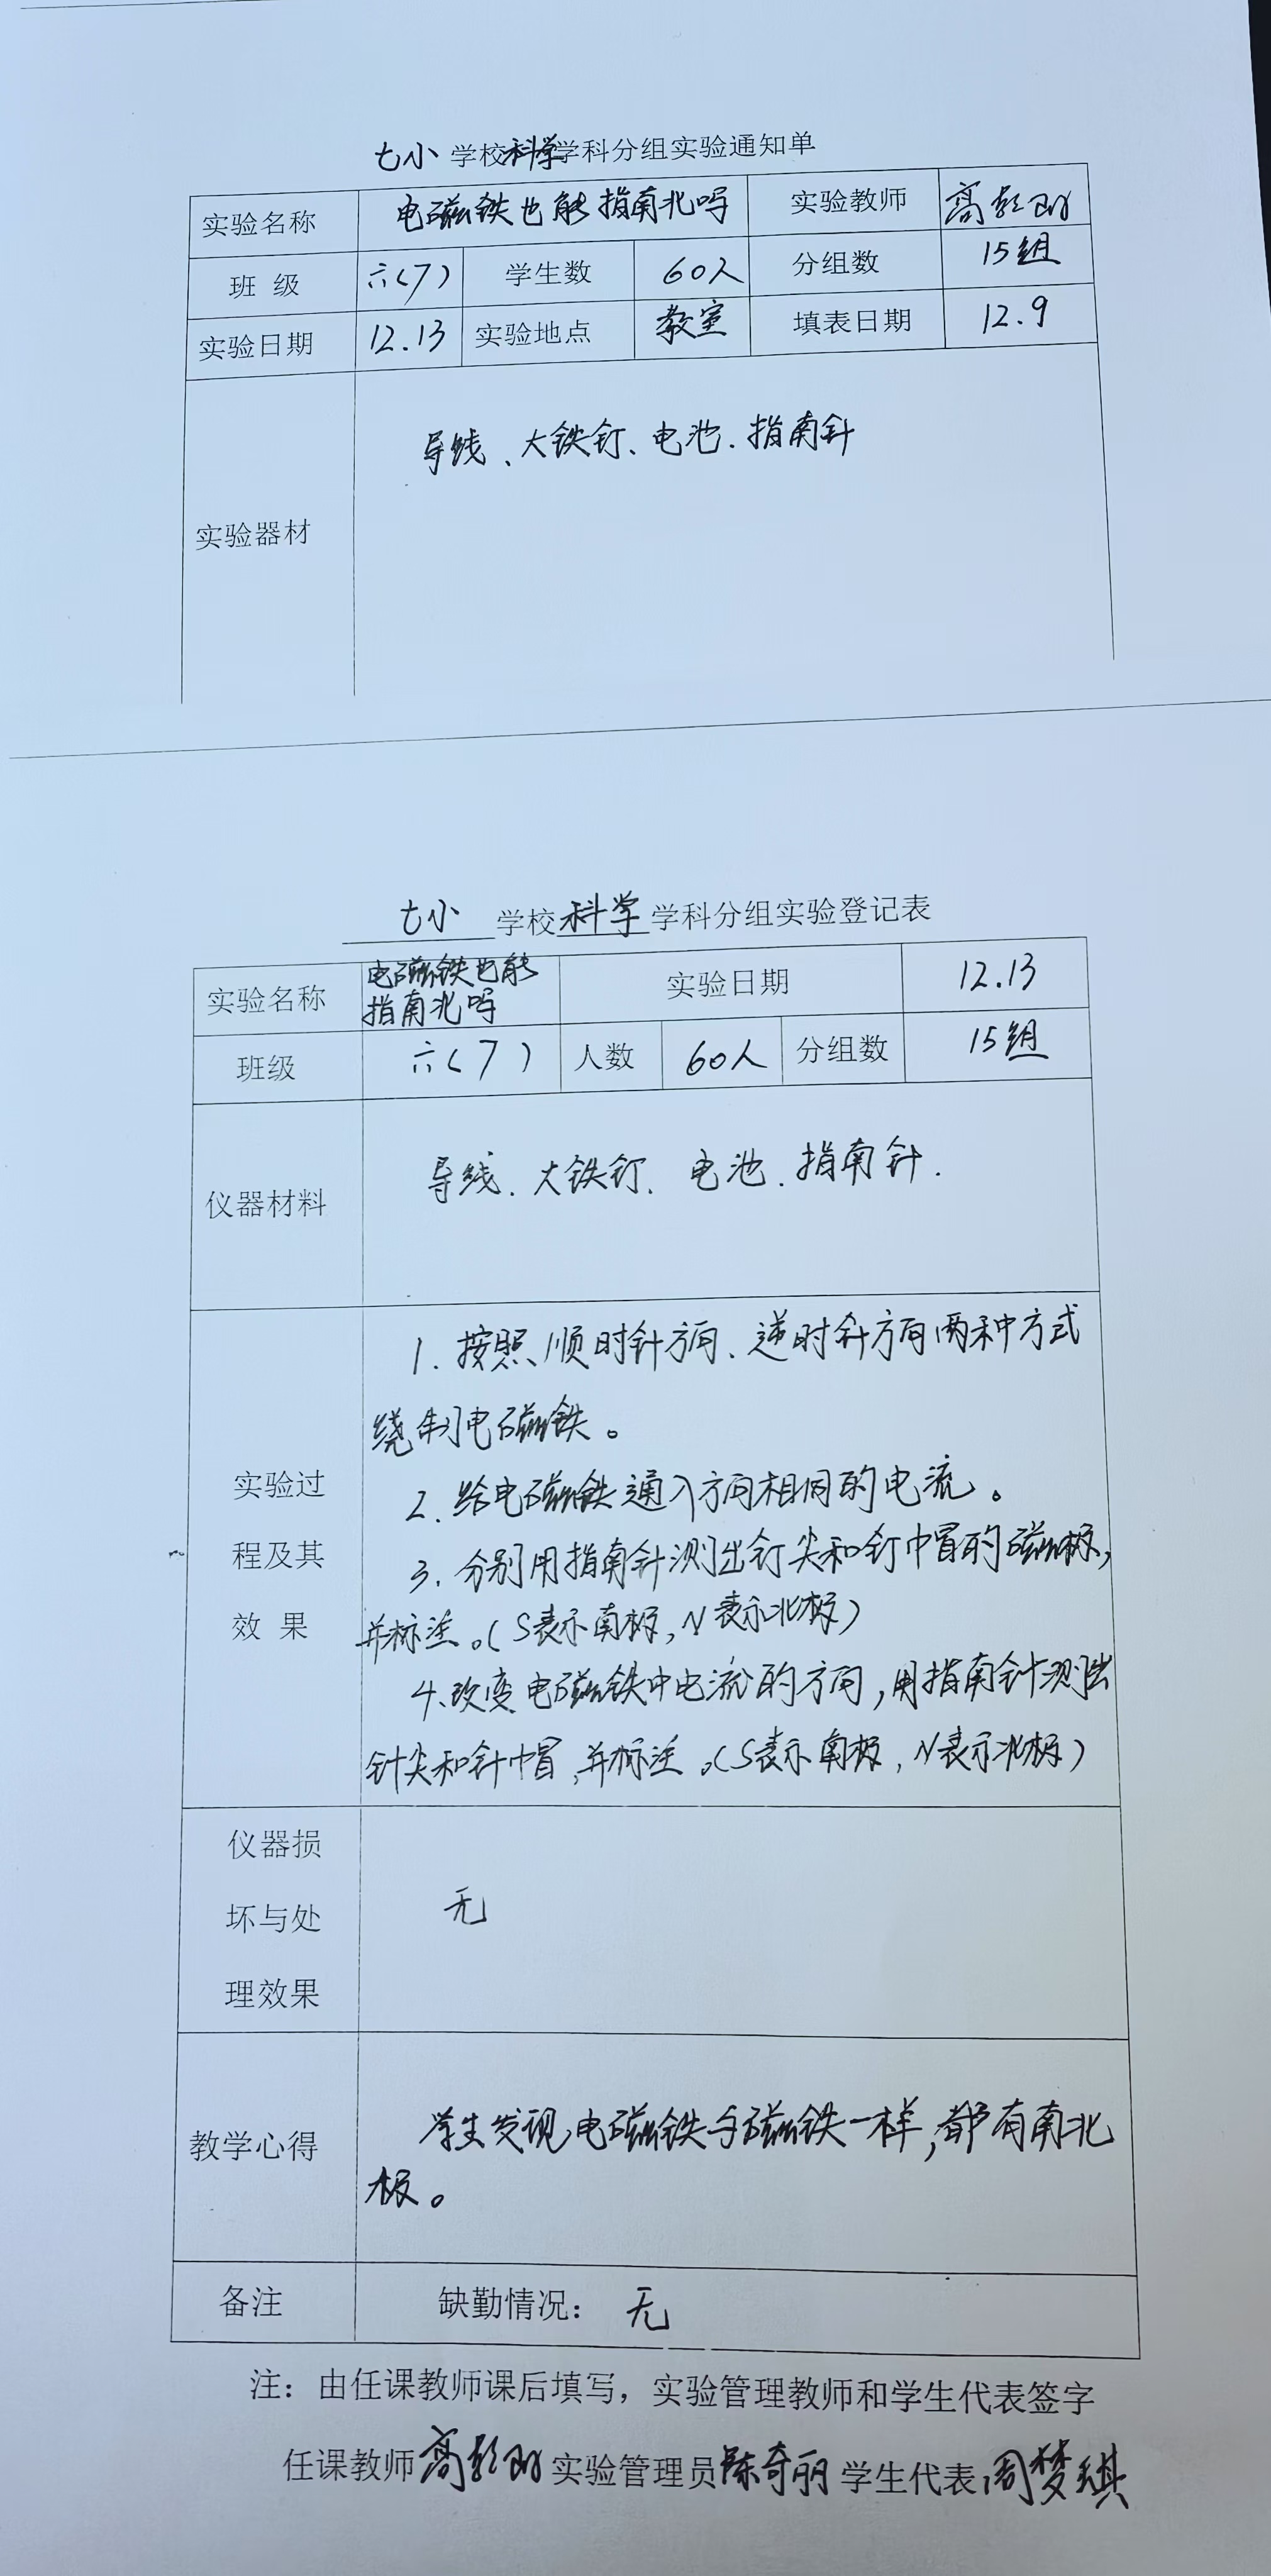 七小 学校科学学科分组实验通知单
实验名称 电磁铁也能指南北吗 实验教师 高
班 级 六(7) 学生数 60人 分组数 15组
实验日期 12.13 实验地点 教室 填表日期 12.9
导线、大铁钉、电池、指南针
实验器材
七小 学校 科学 学科分组实验登记表
实验名称 电磁铁也能 实验日期 12.13
指南北吗
班级 六(7) 人数 60人 分组数 15组
导线、大铁钉、电池、指南针.
仪器材料
1. 按照顺时针方向、逆时针方向两种方式
绕制电磁铁。
实验过 2. 给电磁铁通入方向相同的电流。
程及其 3. 分别用指南针测出钉尖和钉帽的磁极,
效 果 并标注。(S表示南极,N表示北极)
4.改变电磁铁中电流的方向,用指南针测出
针尖和针帽,并标注。(S表示南极,N表示北极)
仪器损
坏与处 无
理效果
学生发现电磁铁与磁铁一样,都有南北
教学心得 极。
备注 缺勤情况: 无
注:由任课教师课后填写,实验管理教师和学生代表签字
任课教师 高 实验管理员 陈奇丽 学生代表 周梦琪